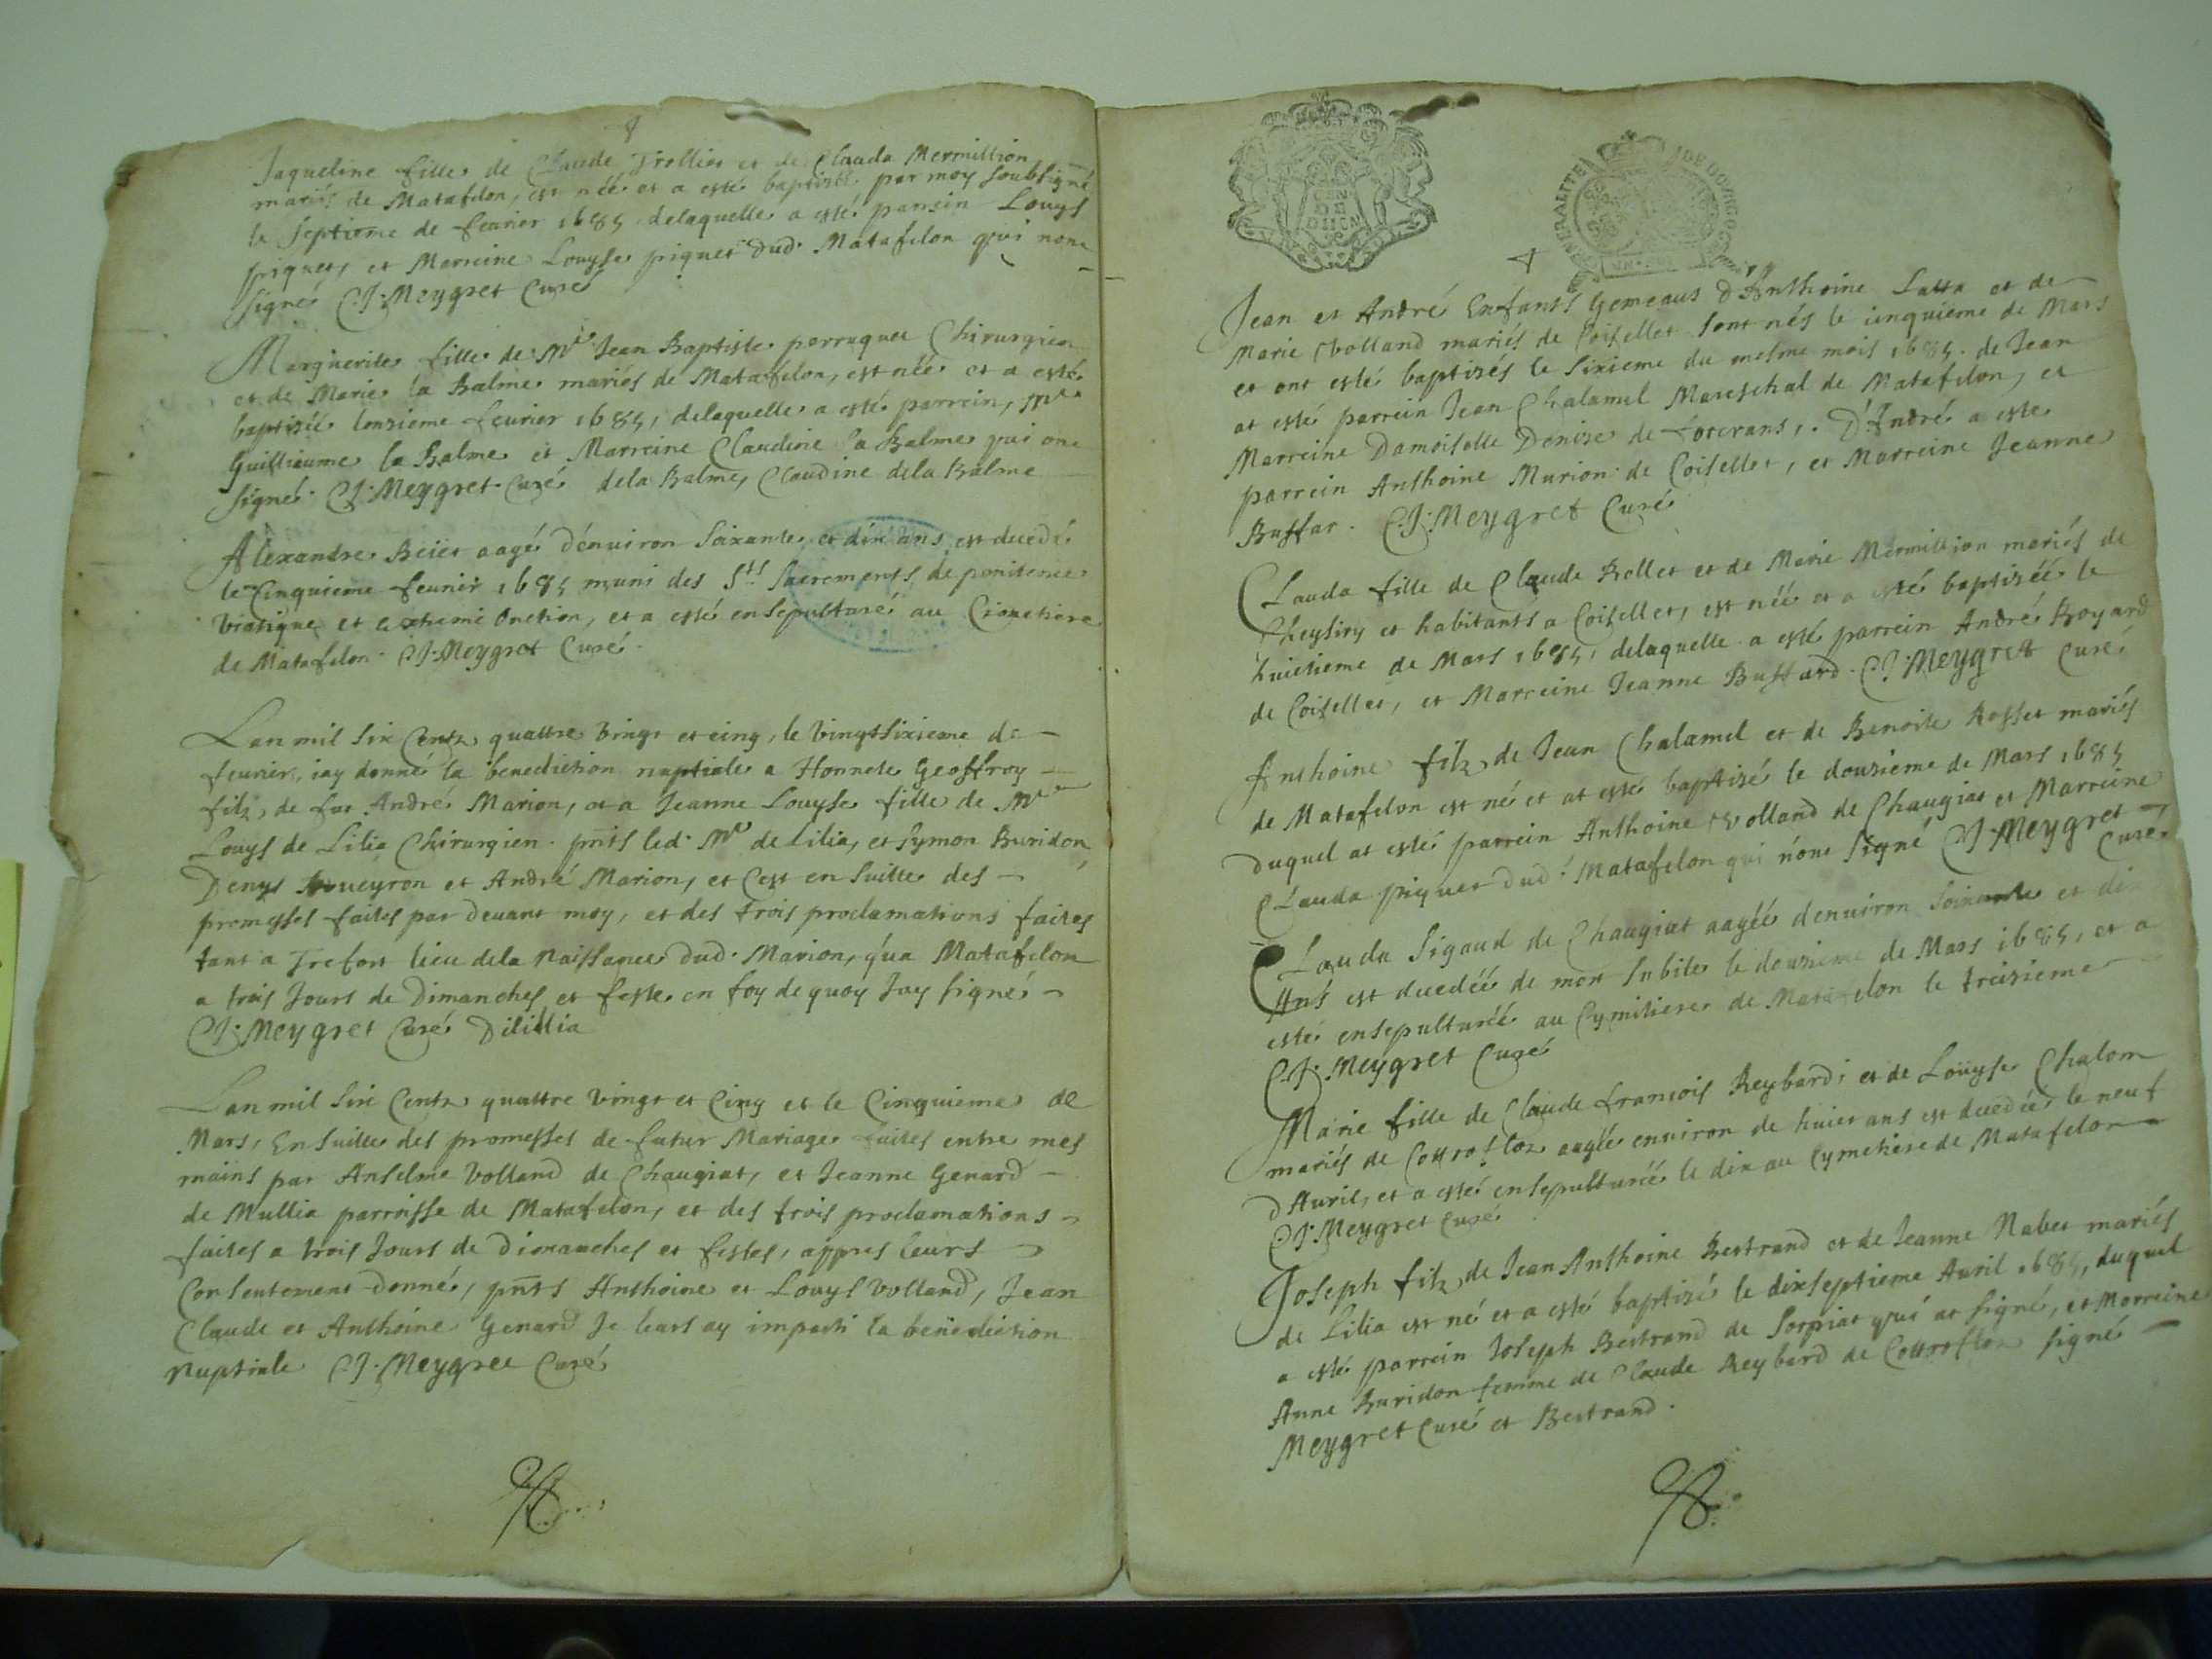 Jaqueline fille de Claude Trollier et de Clauda Mermillion
mariés de Matafelon, est née et a esté baptisée par moy soubsigné
le septieme de feurier 1685 delaquelle a esté parrein Louys
piquet, et Marreine Louyse piquet dud. Matafelon qui nont
signé CJ. Meygret Curé
Marguerite fille de Mre Jean Baptiste perruquet Chirurgien
et de Marie la Balme mariés de Matafelon, est née et a esté
baptisée lonzieme feurier 1685, delaquelle a esté parrein, Mre
Guilliaume la Balme et Marreine Claudine la Balme qui ont
signé. CJ. Meygret Curé dela Balme, Claudine dela Balme
Alexandre Beiet aagé dénuiron soixante et dix ans est decedé
le Cinquieme feurier 1685 muni des Sts Sacrements de penitence
viatique et extreme onction, et a esté ensepulturé au Cimetiere
de Matafelon. CJ. Meygret Curé.
Lan mil six Centz quattre vingt et cinq, le vingtsixieme de
feurier, iay donné la benediction nuptiale a Honnete Geoffroy
filz de fut André Marion, et a Jeanne Louyse fille de Mre
Louys de Lilia Chirurgien. pnts led. Mre de Lilia, et Symon Buridon
Denys et André Marion, et Cest en suitte des
promesses faites par deuant moy, et des trois proclamations faites
tant a Trefort lieu dela naissance dud. Marion, qua Matafelon
a trois Jours de Dimanches et feste en foy de quoy Jay signé
CJ. Meygret Curé Dilillia
Lan mil six Centz quattre vingt et Cinq et le Cinquieme de
Mars, En suitte des promesses de futur Mariage faites entre mes
mains par Anselme Volland de Chaugiat, et Jeanne Genard
de Mullia parroisse de Matafelon, et des trois proclamations
faites a trois Jours de Dimanches et festes, appres leurs
Consentement donné, pnts Anthoine et Louys Volland, Jean
Claude et Anthoine Genard Je leurs ay imparti la benediction
Nuptiale CJ. Meygret Curé
Jean et André Enfants Gemeaus D'Anthoine Latta et de
Marie Volland mariés de Coisellet sont nés le cinquieme de Mars
et ont esté baptizés le sixieme du mesme mois 1685. de Jean
at esté parrein Jean Chalamel Mareschal de Matafelon, et
Marreine Damoiselle Denise de forcrans, D'André a esté
parrein Anthoine Murion de Coisellet, et Marreine Jeanne
Buffar. CJ. Meygret Curé
Clauda fille de Claude Rollet et de Marie Mermillion mariés de
Cheysiry et habitants a Coisellet, est néé et a esté baptizéé le
huictieme de Mars 1685, delaquelle a esté parrein André Boyard
de Coisellet, et Marreine Jeanne Buffard. CJ. Meygret Curé
Anthoine filz de Jean Chalamel et de Benoite Rosset mariés
de Matafelon est né et at esté baptizé le douzieme de Mars 1685
duquel at esté parrein Anthoine Volland de Chaugiat et Marreine
Clauda piquet dud. Matafelon qui n'ont signé CJ. Meygret
Curé
Clauda Sigaud de Chaugiat aagéé denuiron soixante et dix
Ans est decedéé de mort subite le douzieme de Mars 1685, et a
esté ensepulturéé au Cymitiere de Matafelon le treizieme
CJ. Meygret Curé
Marie fille de Claude francois Reybard, et de Louyse Chalom
mariés de Cottrofloz aagéé enuiron de huict ans est decedéé le neuf
D'Auril, et a esté ensepulturéé le dix au Cymetiere de Matafelon
CJ. Meygret Curé
Joseph filz de Jean Anthoine Bertrand et de Jeanne Nabet mariés
de Lilia est né et a esté baptizé le dixseptieme Auril 1685, duquel
a esté parrein Joseph Bertrand de Sorpiat qui at signé, et Marreine
Anne Buridon femme de Claude Reybard de Cottrofloz signé
Meygret Curé et Bertrand.